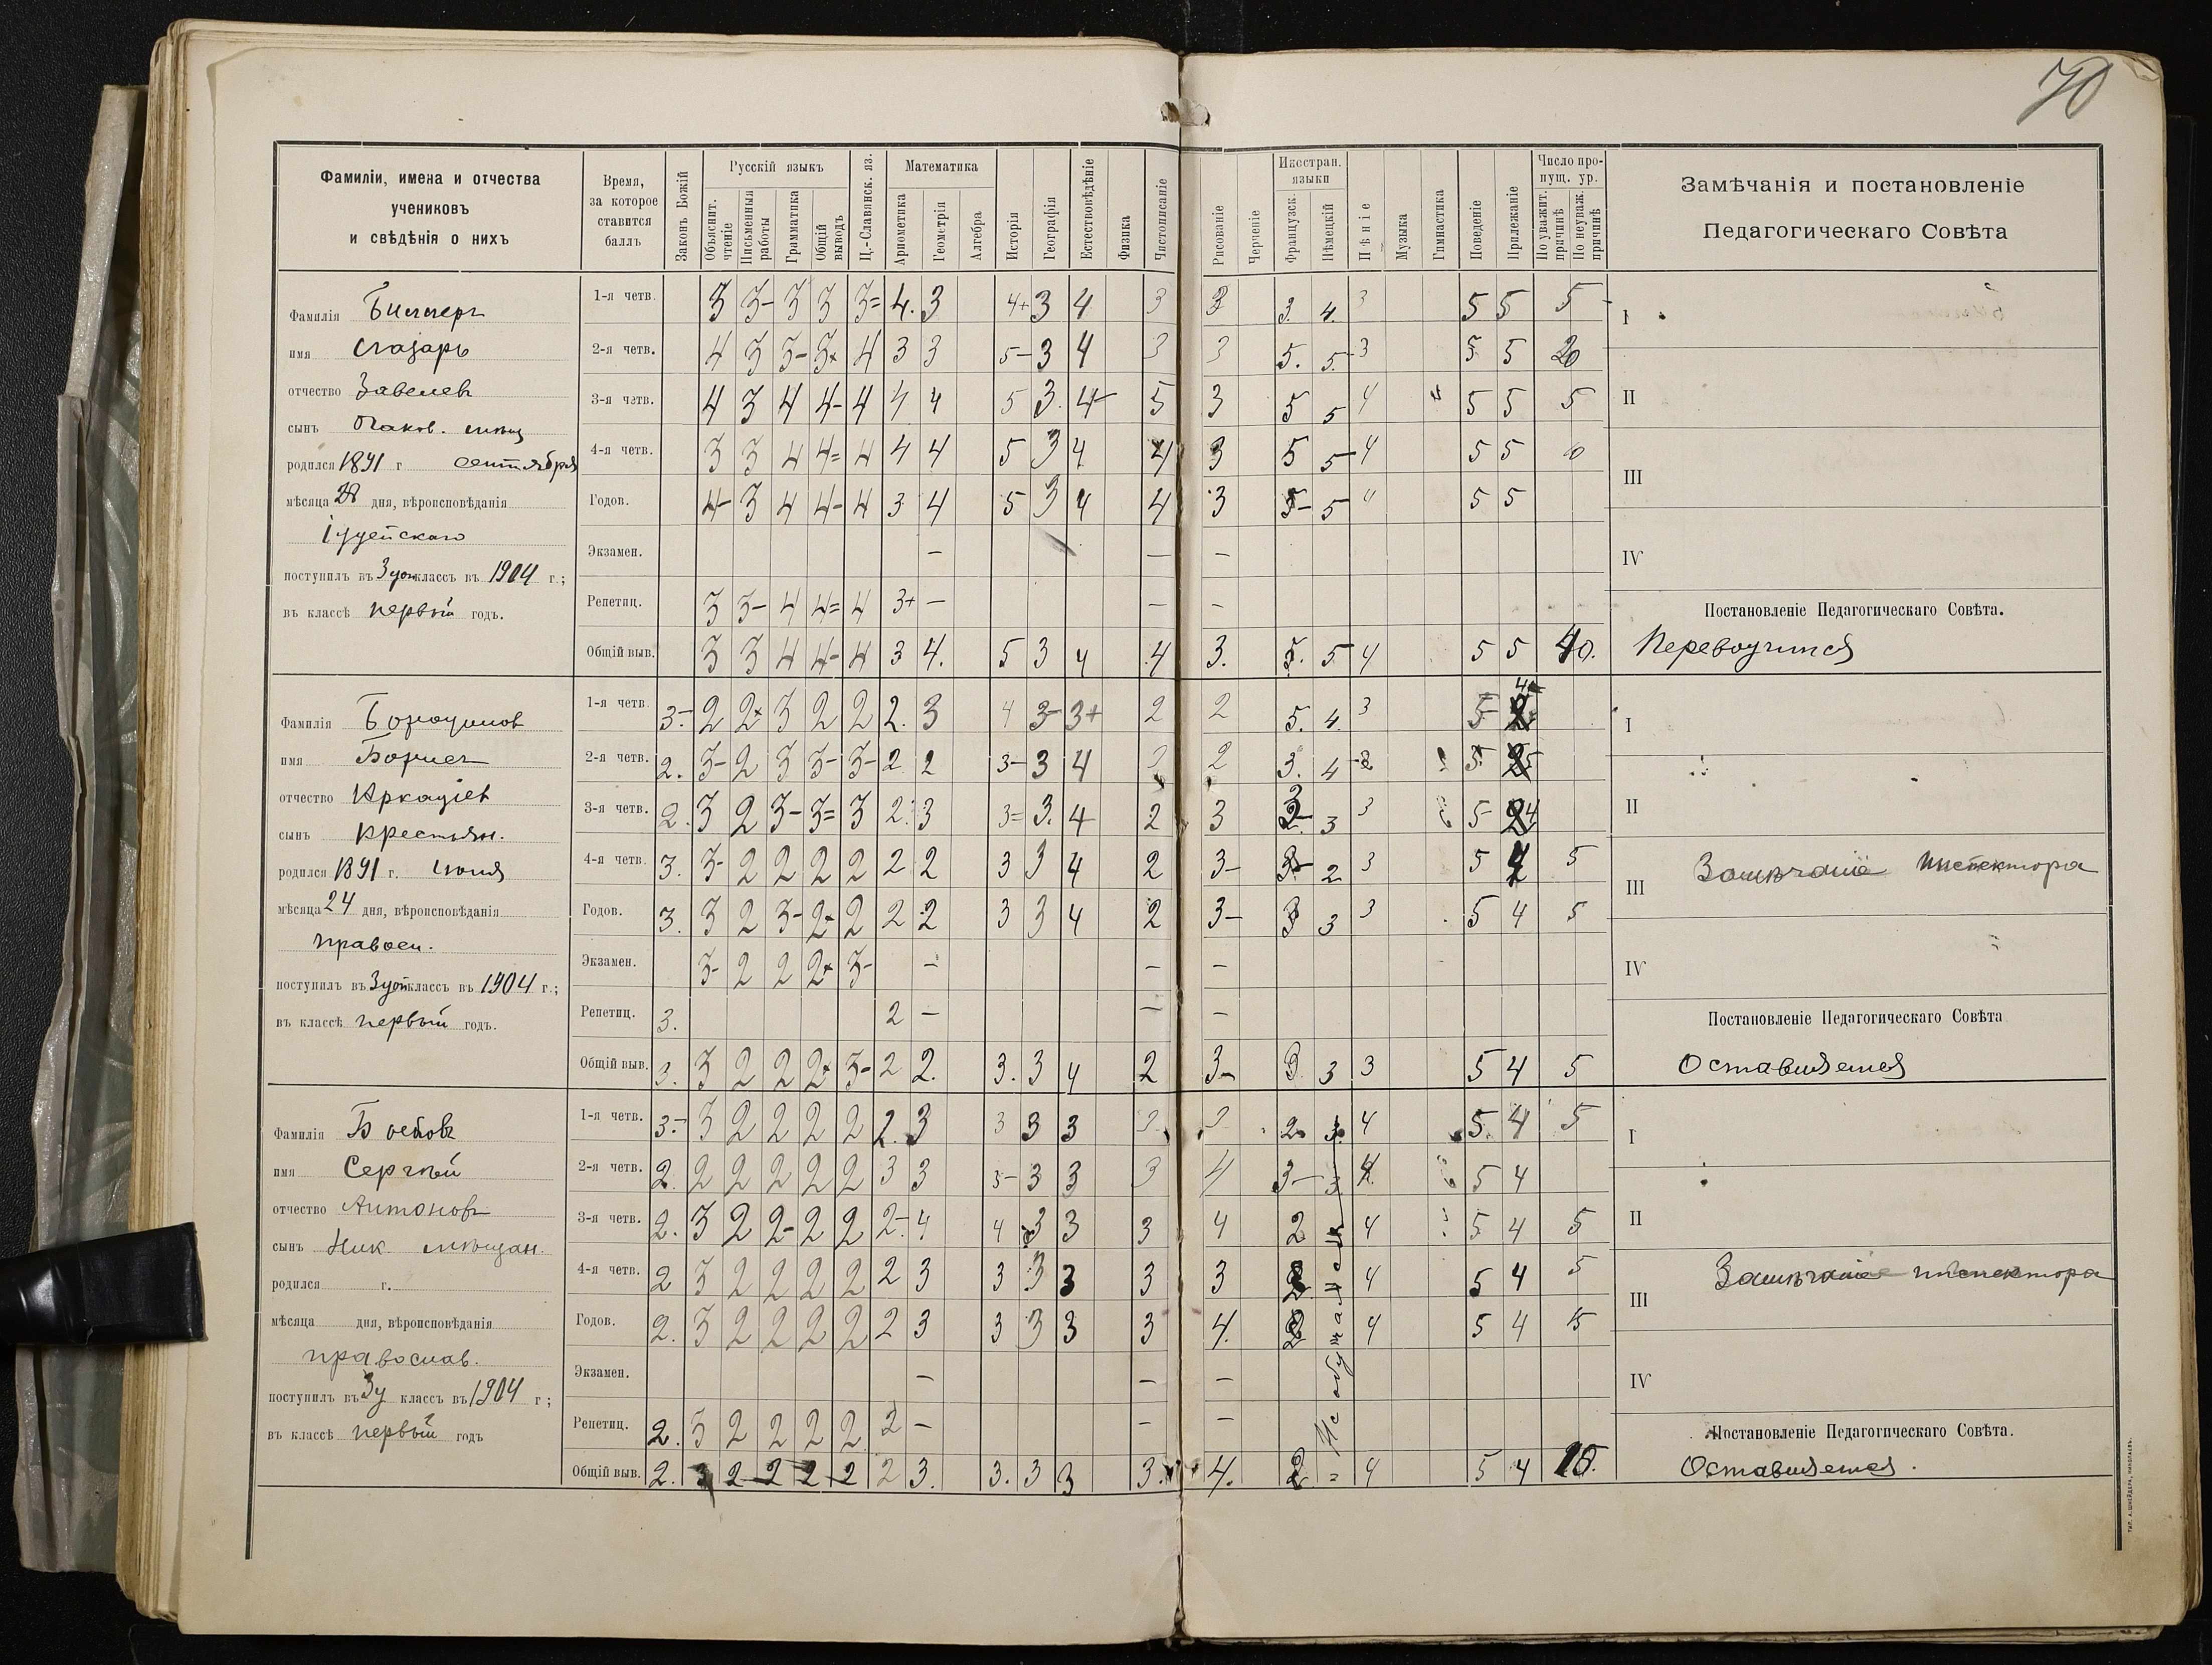 70
Фамиліи, имена и отчества
учениковъ
и свѣдѣнія о нихъ
Время,
за которое
ставится
баллъ
Законъ Божій
Русскій языкъ
Объяснит. чтеніе
Письменныя работы
Грамматика
Общій выводъ
Ц.-Славянск. яз.
Математика
Ариѳметика
Геометрія
Алгебра
Исторія
Географія
Естествовѣдѣніе
Физика
Чистописаніе
Рисованіе
Черченіе
Иностран. языки
Французск.
Нѣмецкій
Пѣніе
Музыка
Гимнастика
Поведеніе
Прилежаніе
Число про-
пущ. ур.
По уважит. причинѣ
По неуваж. причинѣ
Замѣчанія и постановленіе
Педагогическаго Совѣта
Фамилія
имя Лазарь
отчество Завелевъ
сынъ Очаков. мѣщ
родился 1891 г сентября
мѣсяца 28 дня, вѣроисповѣданія
іудейскаго
поступилъ въ 3 классъ въ 1904 г.;
въ классѣ первый годъ.
1-я четв. 3 3- 3 3 3= 4. 3 4+ 3 4 3 3 3. 4. 3 5 5 5
2-я четв. 4 3 3- 3+ 4 3 3 5- 3 4 3 3 5. 5. 3 5 5 20
3-я четв. 4 3 4 4- 4 4 4 5 3. 4- 5 3 5 5 4 4 5 5 5
4-я четв. 3 3 4 4= 4 4 4 5 3 4 4 3 5 5- 4 5 5 10
Годов. 4- 3 4 4- 4 3 4 5 3 4 4 3 5- 5- 4 5 5
Экзамен. — — —
Репетиц. 3 3- 4 4= 4 3+ — — —
Общій выв. 3 3 4 4- 4 3 4. 5 3 4 4 3. 5. 5 4 5 5 40.
I
II
III
IV
Постановленіе Педагогическаго Совѣта.
Переводится
Фамилія Бородинов
имя Борисъ
отчество Аркадіев
сынъ крестьян.
родился 1891 г. Іюля
мѣсяца 24 дня, вѣроисповѣданія
правосл.
поступилъ въ 3 классъ въ 1904 г.;
въ классѣ первый годъ.
1-я четв. 3- 2 2+ 3 2 2 2. 3 4 3- 3+ 2 2 5. 4. 3 5- 4
2-я четв. 2. 3- 2 3 3- 3- 2 2 3- 3 4 2 3. 4 5. 5
3-я четв. 2. 3 2 3- 3= 3 2. 3 3= 3. 4 2 3 3 3 3 5- 4
4-я четв. 3. 3- 2 2 2 2 2 2 3 3 4 2 3- 3- 2 3 5 4 5
Годов. 3. 3 2 3- 2+ 2 2 2 3 3 4 2 3- 3 3 3 5 4 5
Экзамен. 3- 2 2 2+ 3- — — —
Репетиц. 3. 2 — — —
Общій выв. 3. 3 2 2 2+ 3- 2 2. 3. 3 4 2 3- 3 3 3 5 4 5
I
II
III Замѣчаніе Инспектора
IV
Постановленіе Педагогическаго Совѣта
Оставляется
Фамилія
имя Сергѣй
отчество Антоновъ
сынъ Ник. мѣщан.
родился г.
мѣсяца дня, вѣроисповѣданія
православ.
поступилъ въ 3у классъ въ 1904 г;
въ классѣ первый годъ
1-я четв. 3- 3 2 2 2 2 2. 3 3 3 3 3 3 2. 3. 4 5. 4 5
2-я четв. 2. 2 2 2 2 2 3 3 3- 3 3 3 4 3- 3 4. 5 4
3-я четв. 2. 3 2 2- 2 2 2- 4 4 3 3 3 4 2 4 5 4 5
4-я четв. 2 3 2 2 2 2 2 3 3 3 3 3 3 2 4 5 4 5
Годов. 2. 3 2 2 2 2 2 3 3 3 3 3 4. 2 4 5 4 15
Экзамен. — — —
Репетиц. 2. 3 2 2 2 2 2 — — —
Общій выв. 2. 3 2 2 2 2 2 3. 3. 3 3 3. 4. 2 = 4 5 4 15.
Не обучался
I
II
III Замѣчаніе инспектора
IV
Постановленіе Педагогическаго Совѣта.
Оставляется.
ТИП. А. ШНЕЙДЕРА, НИКОЛАЕВЪ.